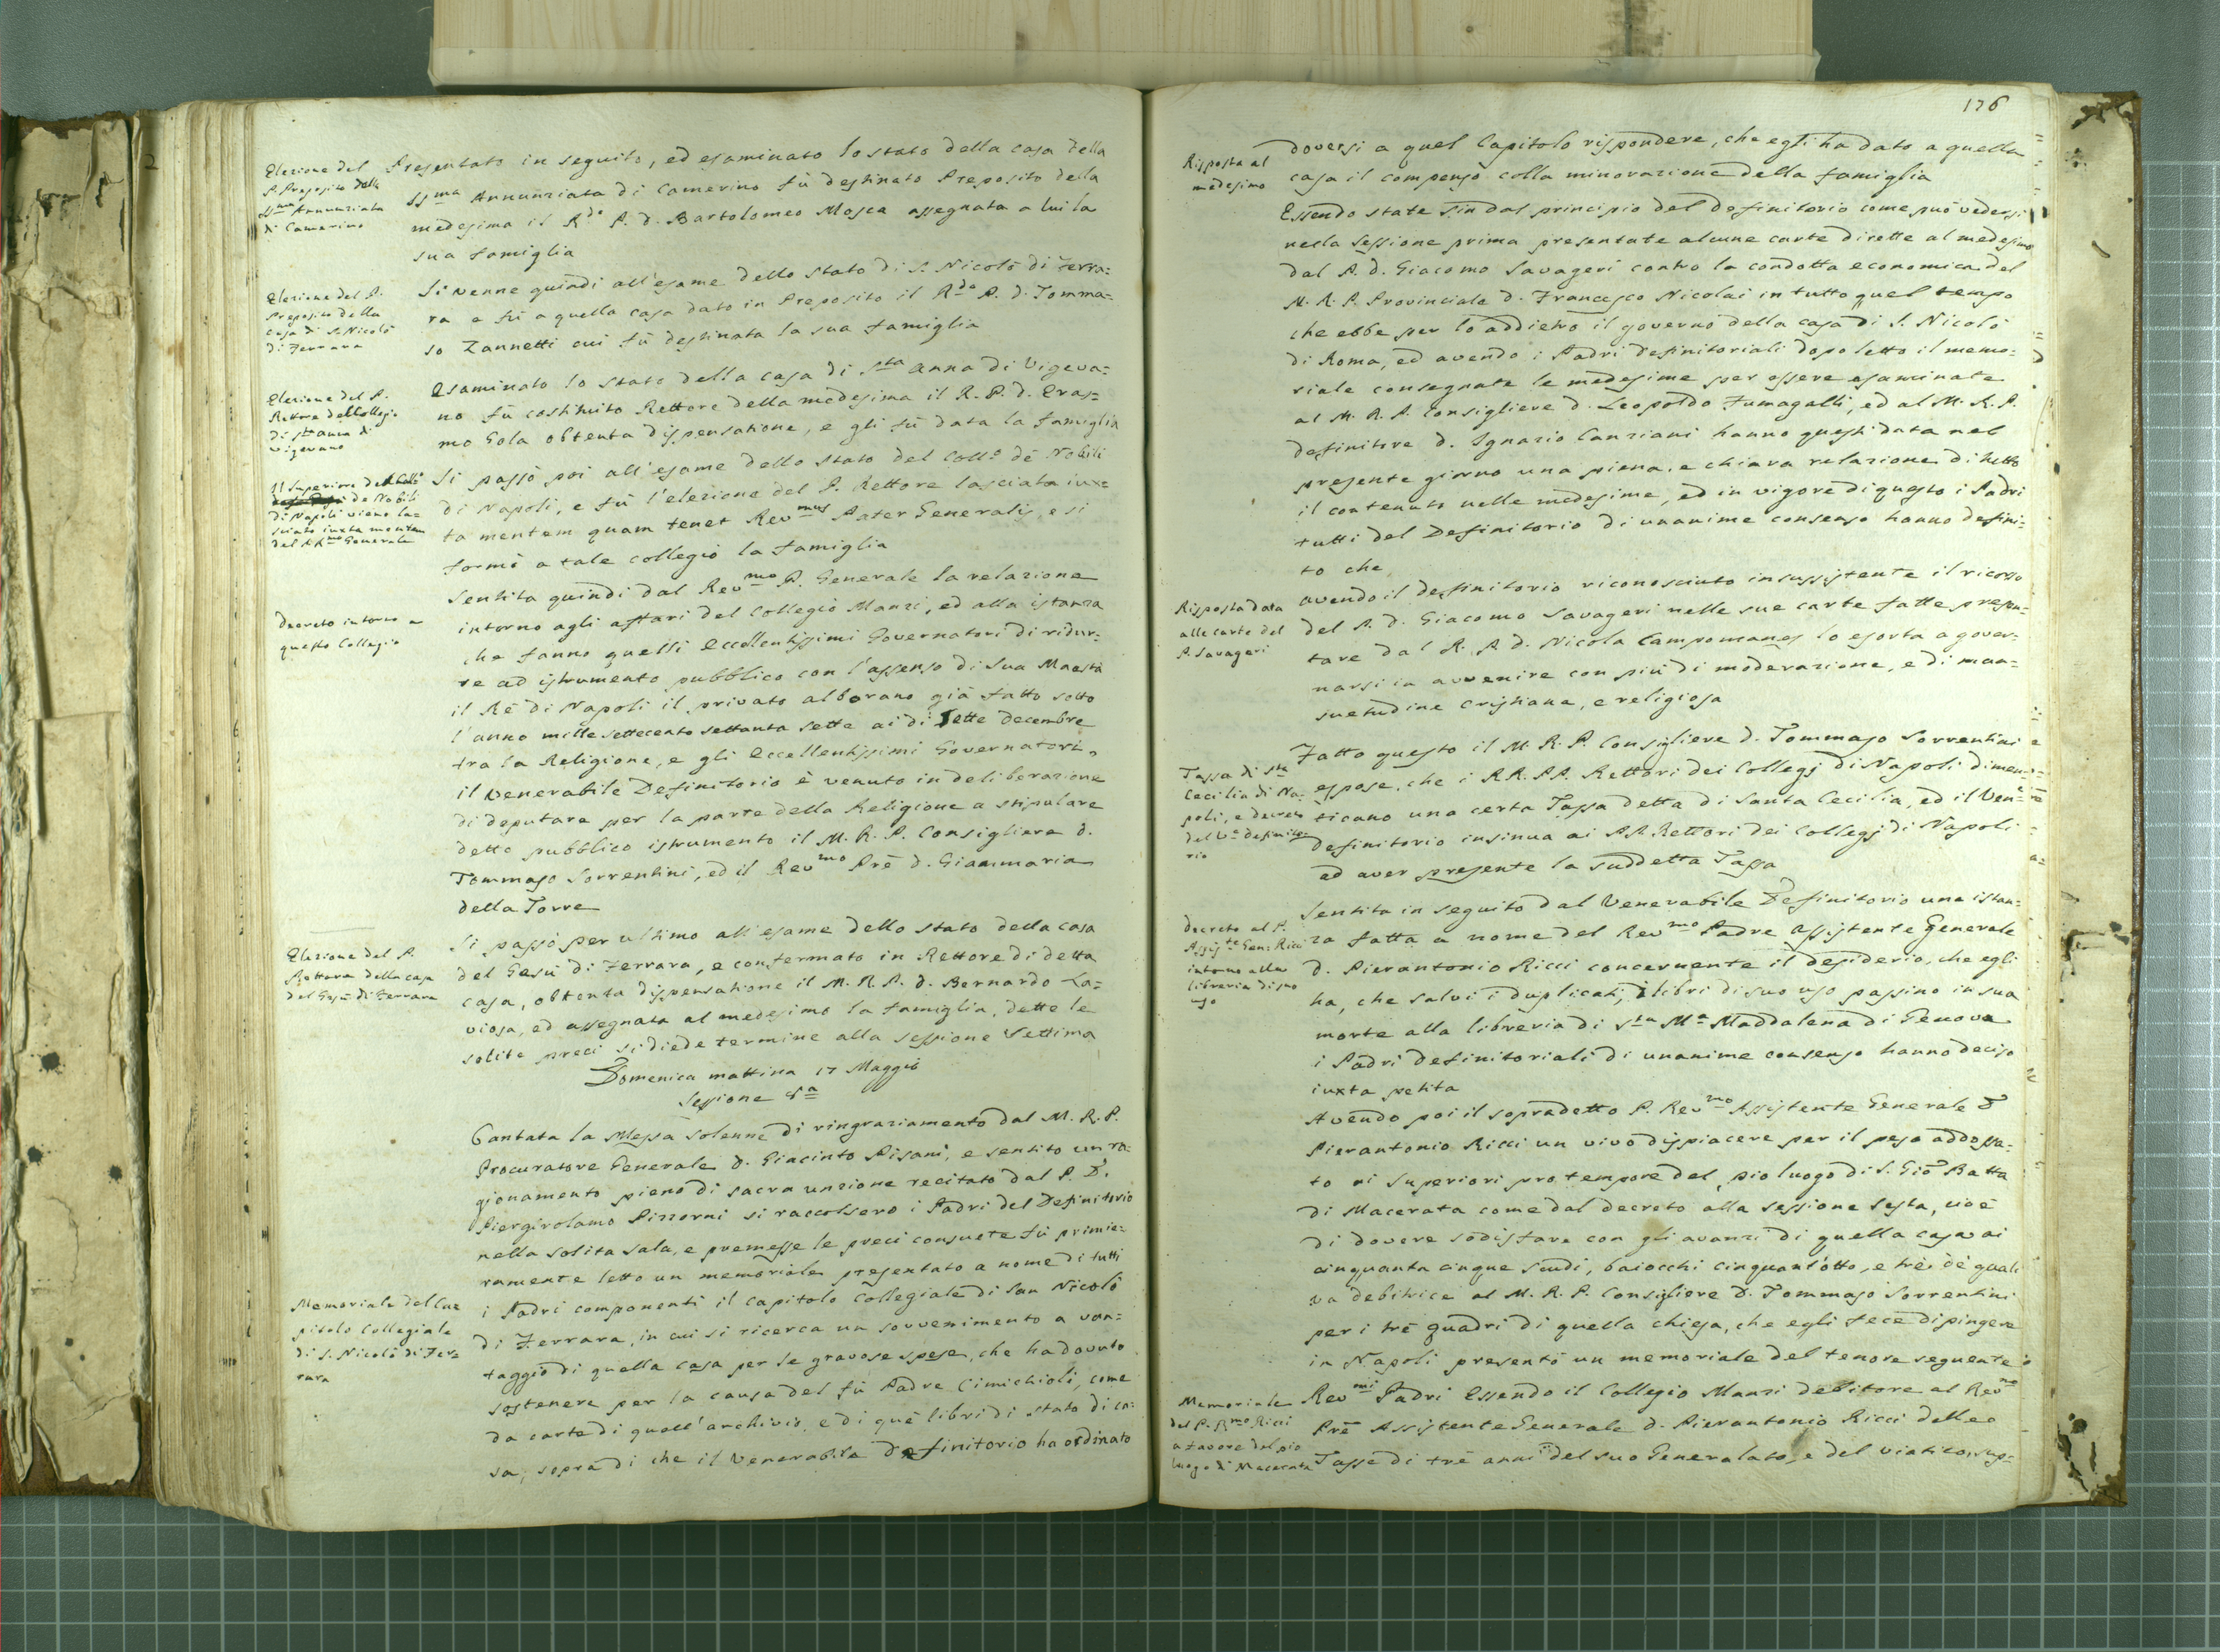 Elezione del
P. Preposito della
SS.ma Annunziata
di Camerino
Presentato in seguito, ed esaminato lo stato della casa della
SS.ma Annunziata di Camerino fù destinato Preposito della
medesima il R.do P. d. Bartolomeo Mosca assegnata a lui la
sua famiglia
Elezione del P.
Preposito della
casa di S. Nicolò
di Ferrara
Si venne quindi all'esame dello stato di S. Nicolò di Ferra=
ra e fù a quella casa dato in Preposito il R.do P. d. Tomma=
so Zannetti cui fù destinata la sua famiglia
Elezione del P.
Rettore del Collegio
di S.ta Anna di
Vigevano
Esaminato lo stato della casa di S.ta Anna di Vigeva=
no fù costituito Rettore della medesima il R. P. d. Eras=
mo Gola obtenta dispensatione, e gli fù data la famiglia
Il Superiore del Coll.o
de Nobili
di Napoli viene la=
sciato iuxta mentem
del R.mo Generale
Si passò poi all'esame dello stato del Coll.o de Nobili
di Napoli, e fù l'elezione del P. Rettore lasciata iux=
ta mentem quam tenet Rev.mus Pater Generalis, e si
formò a tale collegio la famiglia
Decreto intorno a
questo Collegio
Sentita quindi dal Rev.mo P. Generale la relazione
intorno agli affari del Collegio Manzi, ed alla istanza
che fanno quelli Eccellentissimi Governatori di ridur=
re ad istrumento pubblico con l'assenso di Sua Maestà
il Rè di Napoli il privato alborano già fatto sotto
l'anno mille settecento settanta sette ai dì sette decembre
tra la Religione, e gli Eccellentissimi Governatori,
il Venerabile Definitorio è venuto in deliberazione
di deputare per la parte della Religione a stipulare
detto pubblico istrumento il M. R. P. Consigliere d.
Tommaso Sorrentini, ed il Rev.mo Prē d. Giammaria
della Torre
Elezione del P.
Rettore della casa
del Gesù di Ferrara
Si passò per ultimo all'esame dello stato della casa
del Gesù di Ferrara, e confermato in Rettore di detta
casa, obtenta dispensatione il M. R. P. d. Bernardo La=
viosa, ed assegnata al medesimo la famiglia, dette le
solite preci si diede termine alla sessione Settima
Domenica mattina 17 Maggio
Sessione 8.a
Cantata la Messa Solenne di ringraziamento dal M. R. P.
Procuratore Generale d. Giacinto Pisani, e sentito un ra=
gionamento pieno di sacra unzione recitato dal P. D.
Piergirolamo Pizzorni si raccolsero i Padri del Definitorio
nella solita sala, e premesse le preci consuete fù primie=
ramente letto un memoriale presentato a nome di tutti
Memoriale del Ca
pitolo Collegiale
di S. Nicolò di Fer=
rara
i Padri componenti il capitolo Collegiale di San Nicolò
di Ferrara, in cui si ricerca un sovvenimento a van=
taggio di quella casa per le gravose spese, che ha dovuto
sostenere per la causa del fù Padre Cimichioli, come
da carte di quell'archivio, e di què libri di stato di ca=
sa, sopra di che il Venerabile Definitorio ha ordinato
176
Risposta al
medesimo
doversi a quel Capitolo rispondere, che egli ha dato a quella
casa il compenso colla minorazione della famiglia
Essendo state sin dal principio del Definitorio come può vedersi
nella Sessione prima presentate alcune carte dirette al medesimo
dal P. d. Giacomo Savageri contro la condotta economica del
M. R. P. Provinciale d. Francesco Nicolai in tutto quel tempo
che ebbe per lo addietro il governo della casa di S. Nicolò
di Roma, ed avendo i Padri Definitoriali dopo letto il memo=
riale consegnate le medesime per essere esaminate
al M. R. P. Consigliere d. Leopoldo Fumagalli, ed al M. R. P.
Definitore d. Ignazio Canziani hanno questi data nel
presente giorno una piena, e chiara relazione di tutto
il contenuto nelle medesime, ed in vigore di questo i Padri
tutti del Definitorio di unanime consenso hanno defini=
to che
Risposta data
alle carte del
P. Savageri
avendo il definitorio riconosciuto insussistente il ricorso
del P. d. Giacomo Savageri nelle sue carte fatte presen=
tare dal R. P. d. Nicola Campomanes lo esorta a gover=
narsi in avvenire con più di moderazione, e di man=
suetudine Cristiana, e religiosa
Tassa di S.ta
Cecilia di Na=
poli, e decreto
del V.e Definito
rio
Fatto questo il M. R. P. Consigliere d. Tommaso Sorrentini
espose, che i RR. PP. Rettori dei Collegj di Napoli dimen=
ticano una certa Tassa detta di Santa Cecilia, ed il Ven.e
Definitorio insinua ai PP. Rettori dei Collegj di Napoli
ad aver presente la suddetta Tassa
Decreto al P.
Assis.te Gen: Ricci
intorno alla
libreria di suo
uso
Sentita in seguito dal Venerabile Definitorio una istan=
za fatta a nome del Rev.mo Padre Assistente Generale
d. Pierantonio Ricci concernente il desiderio, che egli
ha, che salvi i duplicati, i libri di suo uso passino in sua
morte alla libreria di S.ta M.a Maddalena di Genova
i Padri Definitoriali di unanime consenso hanno deciso
iuxta petita
Avendo poi il sopradetto P. Rev.mo Assistente Generale D
Pierantonio Ricci un vivo dispiacere per il peso addossa=
to ai Superiori pro tempore del pio luogo di S. Gio Batta
di Macerata come dal decreto alla sessione sesta, cioè
di dovere sodisfare con gli avanzi di quella casa ai
cinquanta cinque scudi, baiocchi cinquant'otto, e trè, dè quali
va debitrice al M. R. P. Consigliere D. Tommaso Sorrentini
per i trè quadri di quella chiesa, che egli fece dipingere
in Napoli presentò un memoriale del tenore seguente
Memoriale
del P. R.mo Ricci
a favore del pio
luogo di Macerata
Rev.mi Padri Essendo il Collegio Manzi debitore al Rev.mo
Prē Assistente Generale d. Pierantonio Ricci delle
Tasse di trè anni del suo Generalato, e del viatico, sup=